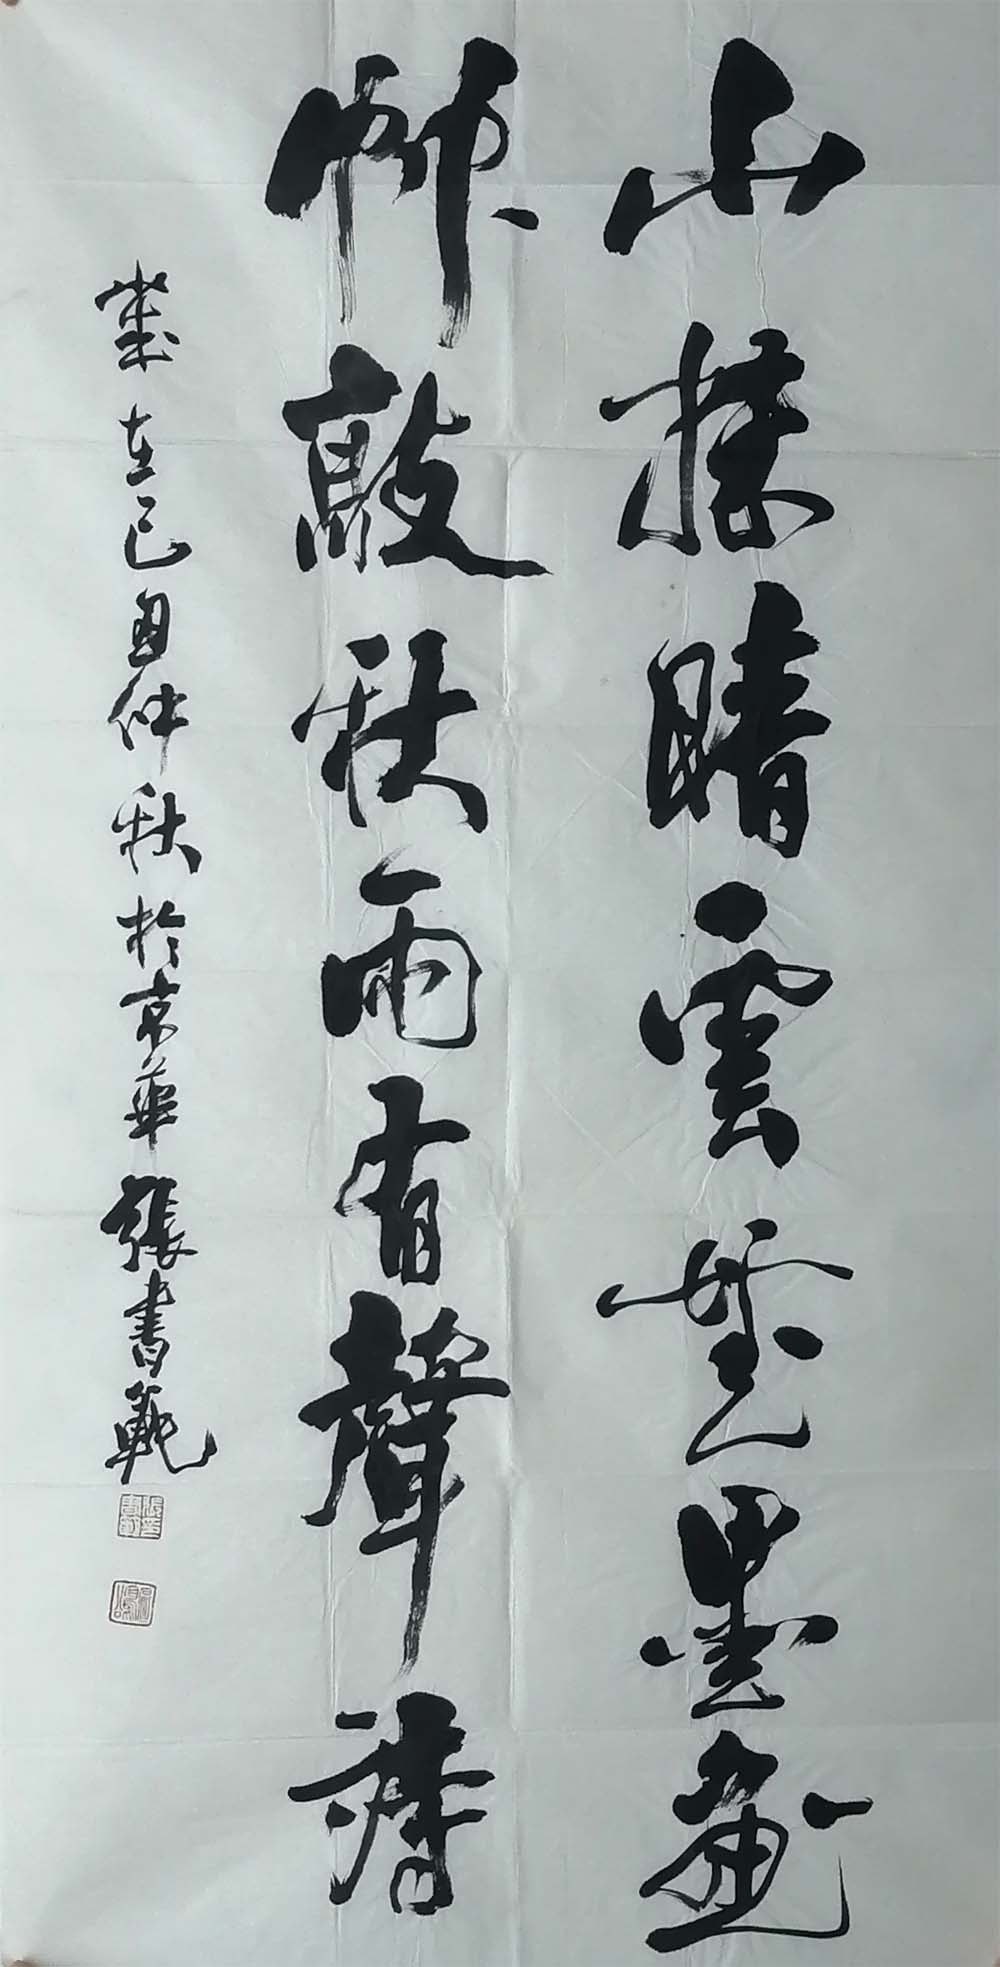 山揉晴雲無墨画
竹敲秋雨有聲詩
歲在己丑仲秋於京華張書範